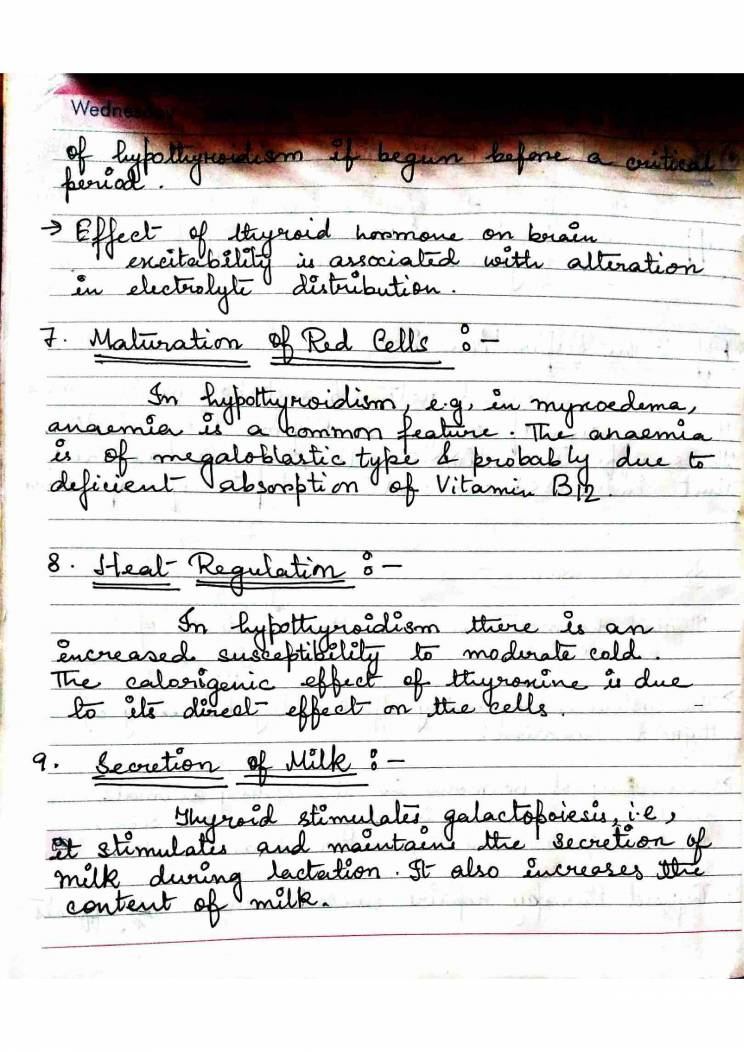 Wednesday
of hypothyroidism if begun before a critical
period.
→ Effect of thyroid hormone on brain
excitability is associated with alteration
in electrolyte distribution.
7. Maturation of Red Cells :-
In hypothyroidism, e.g, in myxoedema,
anaemia is a common feature. The anaemia
is of megaloblastic type & probably due to
deficient absorption of Vitamin B12.
8. Heat Regulation :-
In hypothyroidism there is an
increased susceptibility to moderate cold.
The calorigenic effect of thyronine is due
to its direct effect on the cells.
9. Secretion of Milk :-
Thyroid stimulates galactopoiesis, i.e,
it stimulates and maintains the secretion of
milk during lactation. It also increases the
content of milk.